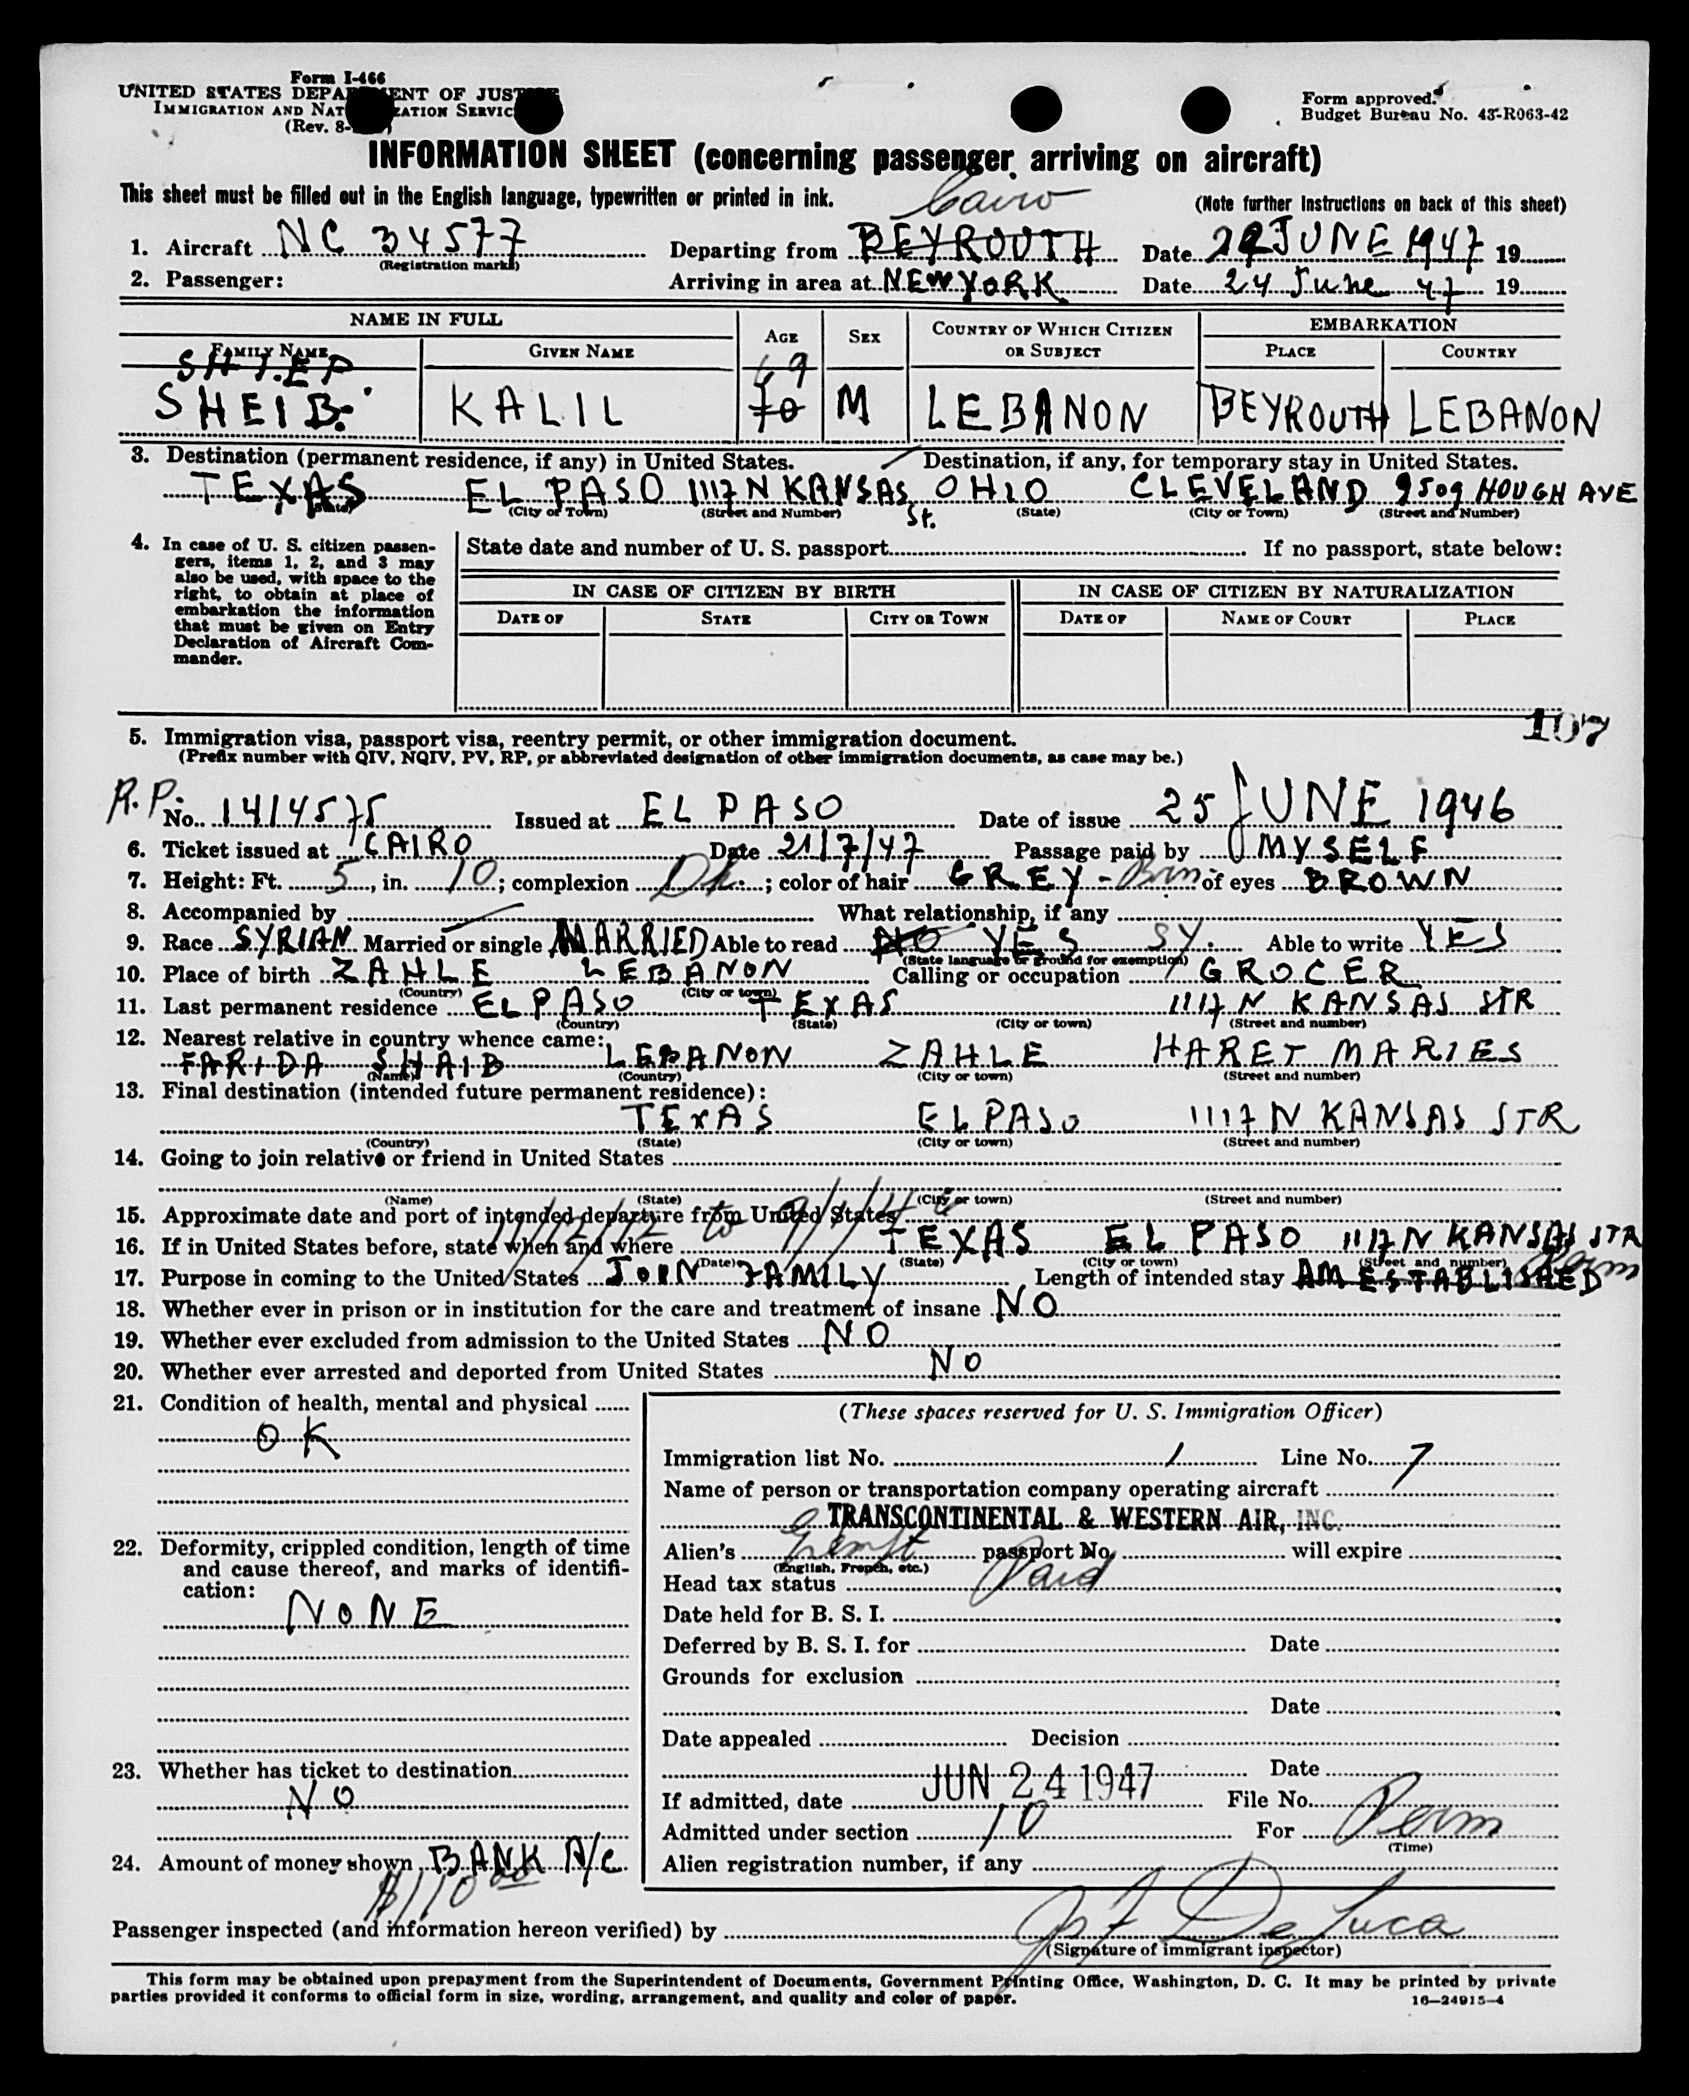 Form I-466
UNITED STATES DEPARTMENT OF JUSTICE
IMMIGRATION AND NATURALIZATION SERVICE
(Rev. 8-
Form approved.
Budget Bureau No. 43-R063-42
INFORMATION SHEET (concerning passenger arriving on aircraft)
This sheet must be filled out in the English language, typewritten or printed in ink.
(Note further instructions on back of this sheet)
Cairo
1. Aircraft NC 34577 Departing from BEYROUTH Date JUNE 1947 19
(Registration marks)
2. Passenger: Arriving in area at NEW YORK Date 24 June 47 19
NAME IN FULL AGE SEX COUNTRY OF WHICH CITIZEN OR SUBJECT EMBARKATION
FAMILY NAME GIVEN NAME PLACE COUNTRY
SHIEP 69
SHEIB KALIL 70 M LEBANON BEYROUTH LEBANON
3. Destination (permanent residence, if any) in United States. Destination, if any, for temporary stay in United States.
TEXAS EL PASO 1117 N KANSAS St. OHIO CLEVELAND 9509 HOUGH AVE
(State) (City or Town) (Street and Number) (State) (City or Town) (Street and Number)
4. In case of U. S. citizen passengers, items 1, 2, and 3 may also be used, with space to the right, to obtain at place of embarkation the information that must be given on Entry Declaration of Aircraft Commander.
State date and number of U. S. passport If no passport, state below:
IN CASE OF CITIZEN BY BIRTH IN CASE OF CITIZEN BY NATURALIZATION
DATE OF STATE CITY OR TOWN DATE OF NAME OF COURT PLACE
107
5. Immigration visa, passport visa, reentry permit, or other immigration document.
(Prefix number with QIV, NQIV, PV, RP, or abbreviated designation of other immigration documents, as case may be.)
R.P. No. 1414575 Issued at EL PASO Date of issue 25 JUNE 1946
6. Ticket issued at CAIRO Date 21/7/47 Passage paid by MYSELF
7. Height: Ft. 5, in. 10; complexion Dk.; color of hair GREY - Brn of eyes BROWN
8. Accompanied by What relationship, if any
9. Race SYRIAN Married or single MARRIED Able to read NO YES SY. Able to write YES
(State language or ground for exemption)
10. Place of birth ZAHLE LEBANON Calling or occupation GROCER
(Country) (City or town)
11. Last permanent residence EL PASO TEXAS 1117 N KANSAS STR
(Country) (State) (City or town) (Street and number)
12. Nearest relative in country whence came:
FARIDA SHAIB LEBANON ZAHLE HARET MARIES
(Name) (Country) (City or town) (Street and number)
13. Final destination (intended future permanent residence):
TEXAS EL PASO 1117 N KANSAS STR
(Country) (State) (City or town) (Street and number)
14. Going to join relative or friend in United States
(Name) (State) (City or town) (Street and number)
15. Approximate date and port of intended departure from United States
16. If in United States before, state when and where 11/12/12 to 9/1/46 TEXAS EL PASO 1117 N KANSAS STR
(Date) (State) (City or town) (Street and number)
17. Purpose in coming to the United States JOIN FAMILY Length of intended stay AM ESTABLISHED Perm
18. Whether ever in prison or in institution for the care and treatment of insane NO
19. Whether ever excluded from admission to the United States NO
20. Whether ever arrested and deported from United States NO
21. Condition of health, mental and physical
OK
22. Deformity, crippled condition, length of time and cause thereof, and marks of identification:
NONE
23. Whether has ticket to destination
NO
24. Amount of money shown BANK A/C
$110.00
(These spaces reserved for U. S. Immigration Officer)
Immigration list No. 1 Line No. 7
Name of person or transportation company operating aircraft
TRANSCONTINENTAL & WESTERN AIR, INC.
Alien's Exempt passport No. will expire
(English, French, etc.)
Head tax status Paid
Date held for B. S. I.
Deferred by B. S. I. for Date
Grounds for exclusion
Date
Date appealed Decision
Date
If admitted, date JUN 24 1947 File No.
Admitted under section 10 For Perm
(Time)
Alien registration number, if any
Passenger inspected (and information hereon verified) by Jos F De Luca
(Signature of immigrant inspector)
This form may be obtained upon prepayment from the Superintendent of Documents, Government Printing Office, Washington, D. C. It may be printed by private
parties provided it conforms to official form in size, wording, arrangement, and quality and color of paper.
16—24915-4